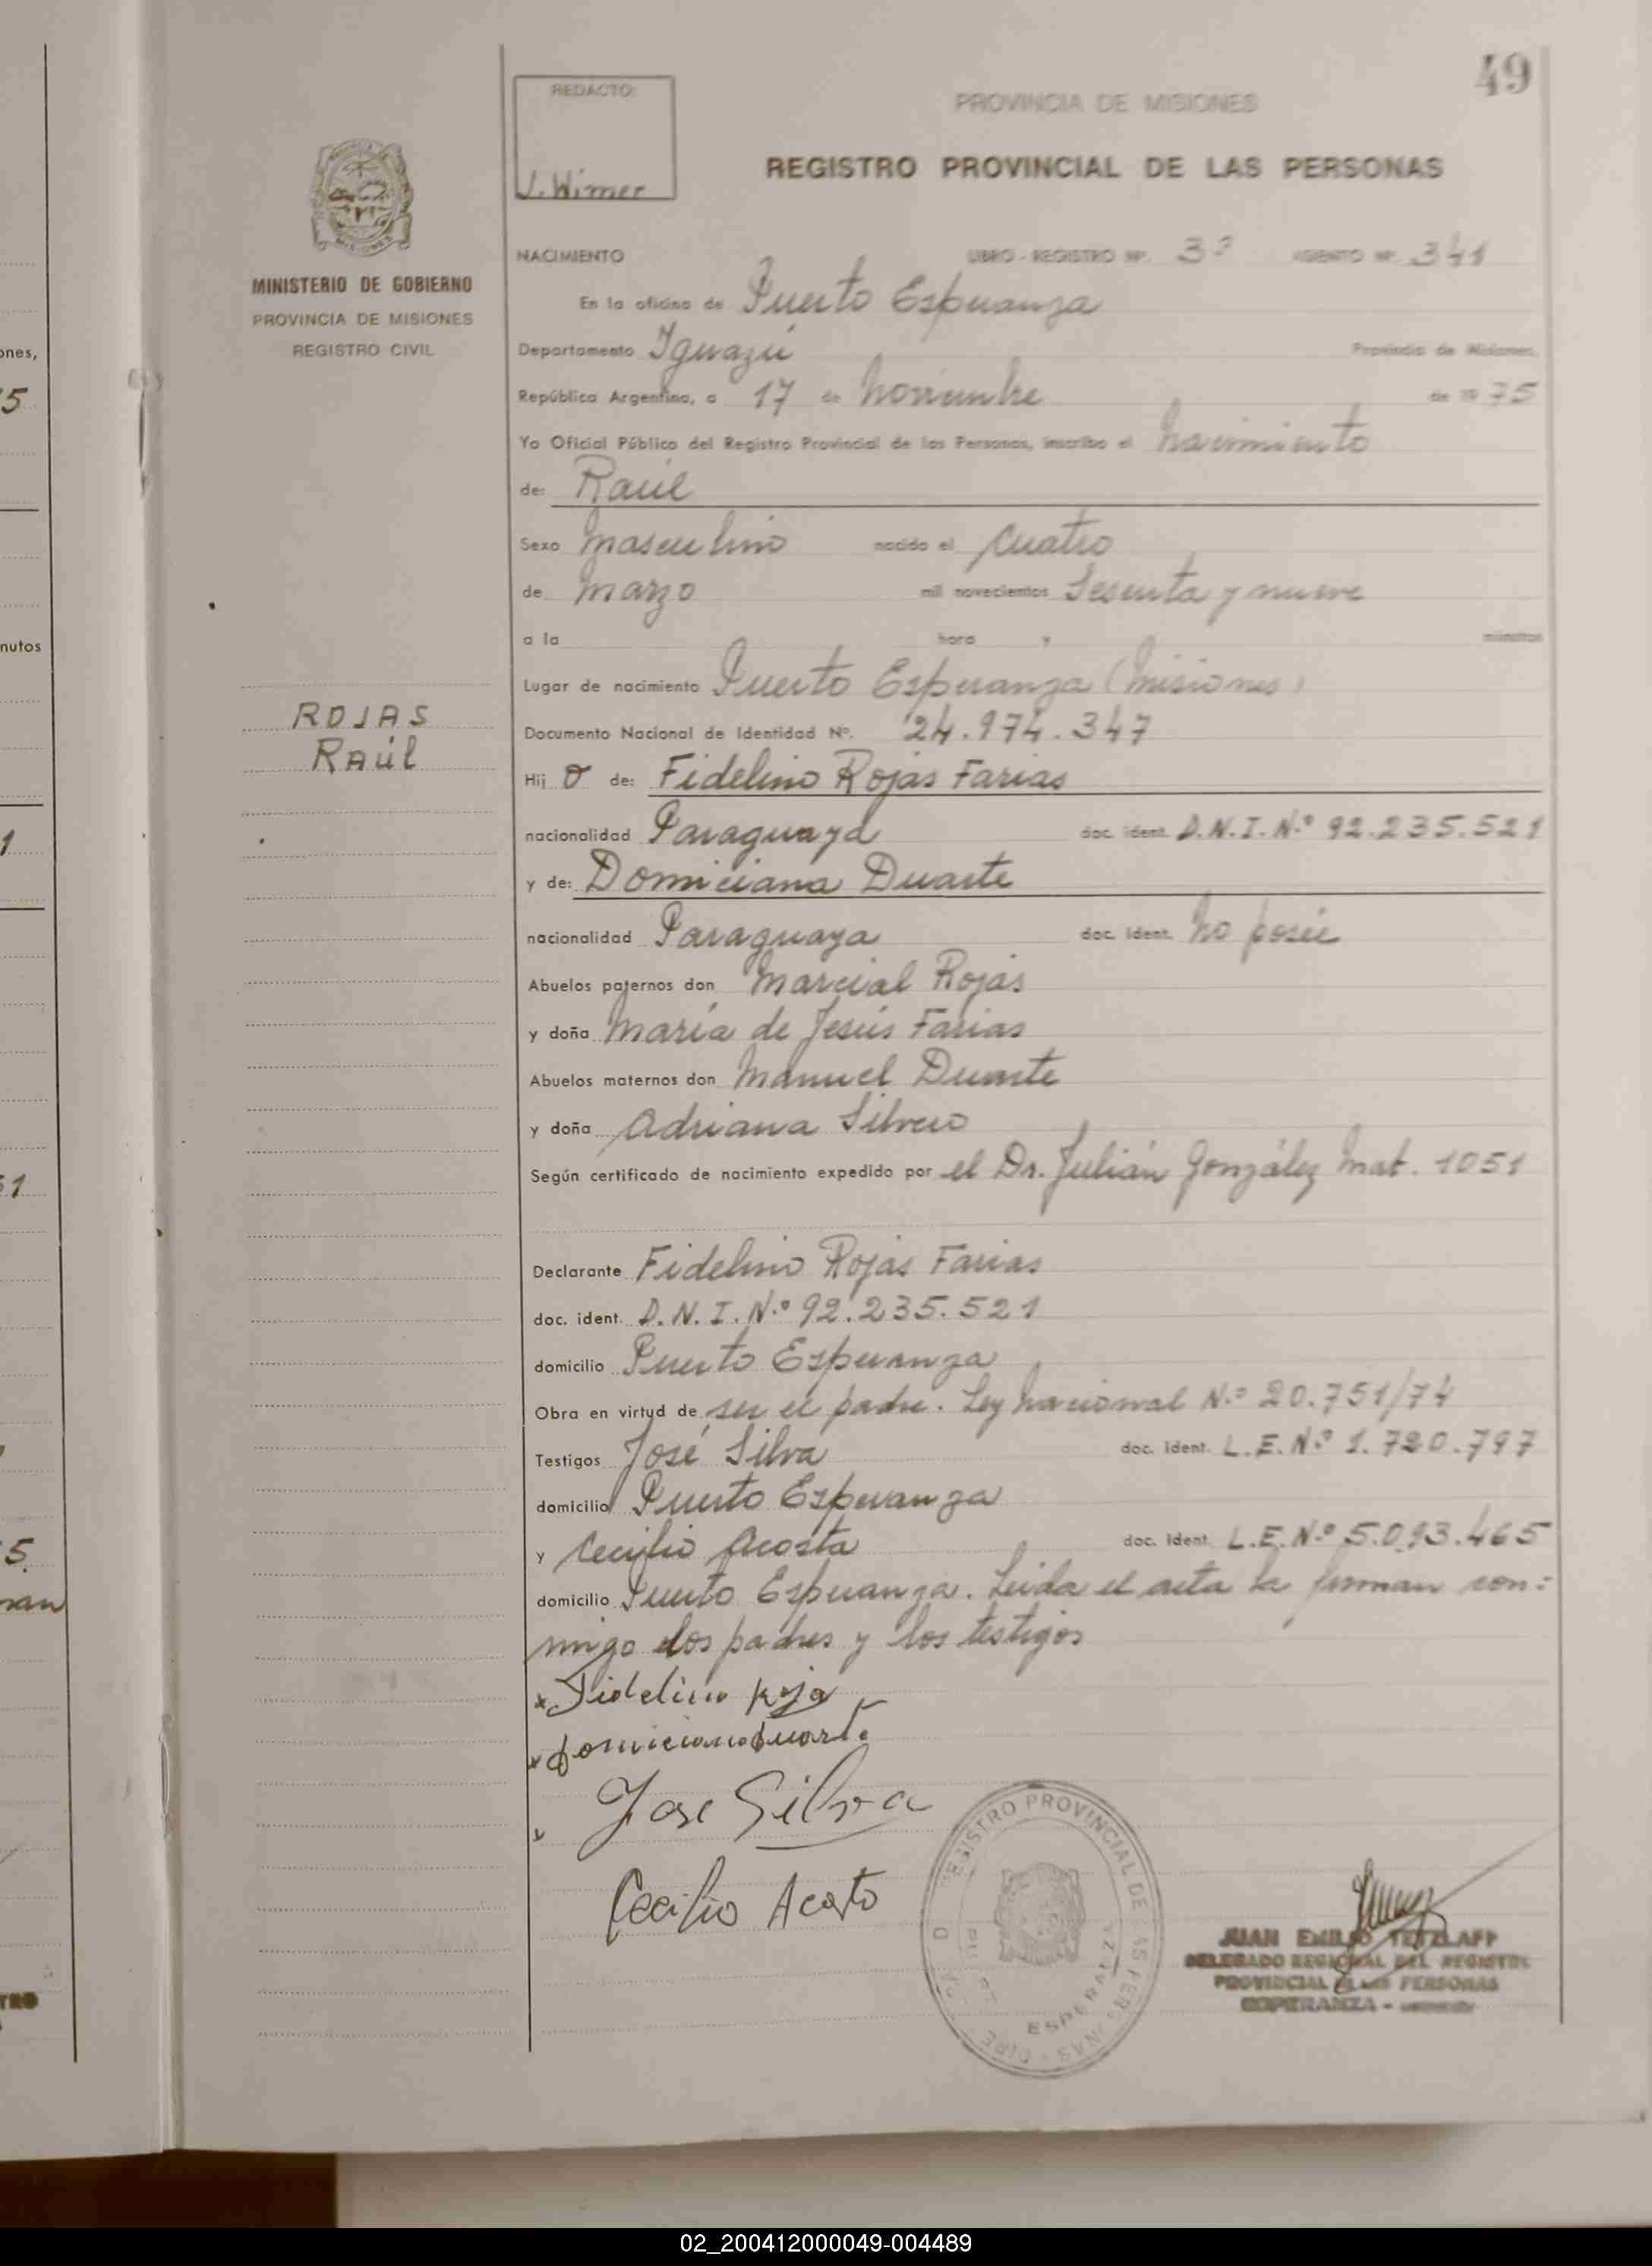 49
REDACTO:
J. Wimer
PROVINCIA DE MISIONES
REGISTRO PROVINCIAL DE LAS PERSONAS
MINISTERIO DE GOBIERNO
PROVINCIA DE MISIONES
REGISTRO CIVIL
NACIMIENTO LIBRO - REGISTRO Nº. 3º ASIENTO Nº 341
En la oficina de Puerto Esperanza
Departamento Iguazú Provincia de Misiones,
República Argentina, a 17 de noviembre de 19 75
Yo Oficial Público del Registro Provincial de las Personas, inscribo el nacimiento
de: Raúl
Sexo masculino nacido el cuatro
de marzo mil novecientos sesenta y nueve
a la hora y minutos
Lugar de nacimiento Puerto Esperanza (Misiones)
ROJAS
Raúl
Documento Nacional de Identidad Nº. 24.974.347
Hij o de: Fidelino Rojas Farias
nacionalidad Paraguaya doc. ident. D.N.I. Nº 92.235.521
y de: Domiciana Duarte
nacionalidad Paraguaya doc. ident. no posée
Abuelos paternos don Marcial Rojas
y doña María de Jesús Farias
Abuelos maternos don Manuel Duarte
y doña Adriana Silvero
Según certificado de nacimiento expedido por el Dr. Julián González Mat. 1051
Declarante Fidelino Rojas Farias
doc. ident. D.N.I. Nº 92.235.521
domicilio Puerto Esperanza
Obra en virtud de ser el padre. Ley Nacional Nº 20.751/74
Testigos José Silva doc. ident. L.E. Nº 1.720.797
domicilio Puerto Esperanza
y Cecilio Acosta doc. ident. L.E. Nº 5.093.465
domicilio Puerto Esperanza. Leida el acta la firman con=
migo los padres y los testigos
x Fidelino Roja
x Domiciana Duarte
x Jose Silva
Cecilio Acosta
REGISTRO PROVINCIAL DE LAS PERSONAS
ESPERANZA
JUAN EMILIO TETZLAFF
DELEGADO REGIONAL DEL REGISTRO
PROVINCIAL DE LAS PERSONAS
ESPERANZA -
02_200412000049-004489